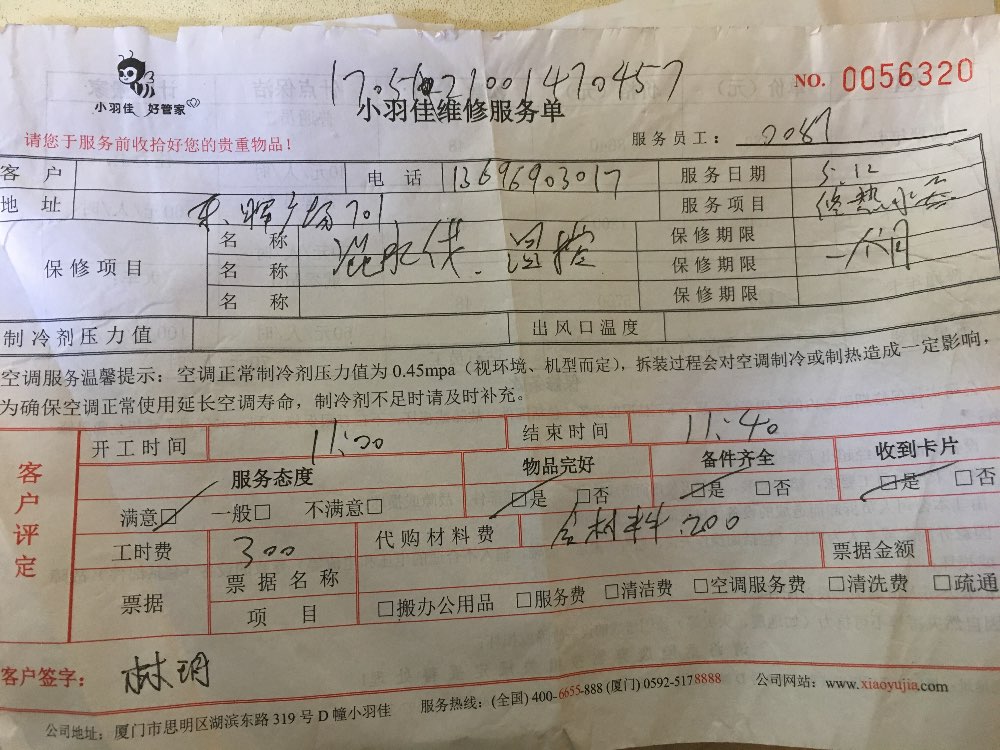 小羽佳 好管家
17.5.121001470457
NO. 0056320
小羽佳维修服务单
请您于服务前收拾好您的贵重物品！
服务员工： 2087
客户 电话 13696903017 服务日期 5.12
地址 东晖广场701 服务项目 修热水器
保修项目 名称 混水伐. 温控 保修期限
名称 保修期限 一个月
名称 保修期限
制冷剂压力值 出风口温度
空调服务温馨提示：空调正常制冷剂压力值为 0.45mpa（视环境、机型而定），拆装过程会对空调制冷或制热造成一定影响，
为确保空调正常使用延长空调寿命，制冷剂不足时请及时补充。
客户评定
开工时间 11:00 结束时间 11:40
服务态度 物品完好 备件齐全 收到卡片
满意□ 一般□ 不满意□ □是 □否 □是 □否 □是 □否
工时费 300 代购材料费 含材料.200
票据 票据名称 票据金额
项目 □搬办公用品 □服务费 □清洁费 □空调服务费 □清洗费 □疏通
客户签字： 林玥
公司地址：厦门市思明区湖滨东路 319 号 D 幢小羽佳 服务热线：(全国) 400-6655-888 (厦门) 0592-5178888 公司网站：www.xiaoyujia.com